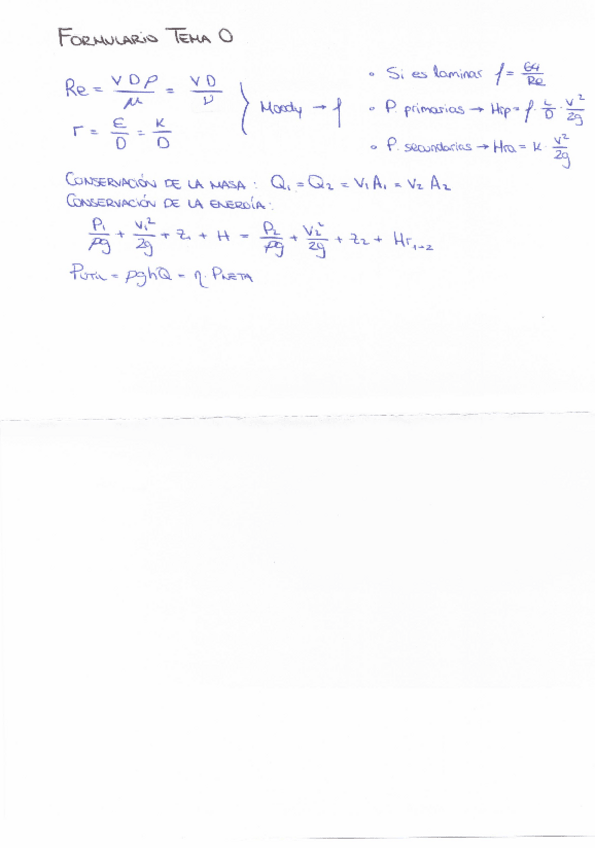 FORMULARIO TEMA 0
Re = VDρ/μ = VD/ν
r = ε/D = K/D
Moody → f
• Si es laminar f = 64/Re
• P. primarias → Hrp = f · L/D · V²/2g
• P. secundarias → Hra = K · V²/2g
CONSERVACIÓN DE LA MASA: Q₁ = Q₂ = V₁A₁ = V₂A₂
CONSERVACIÓN DE LA ENERGÍA:
P₁/ρg + V₁²/2g + Z₁ + H = P₂/ρg + V₂²/2g + Z₂ + Hr₁→₂
PUTIL = ρghQ = η · PNETA